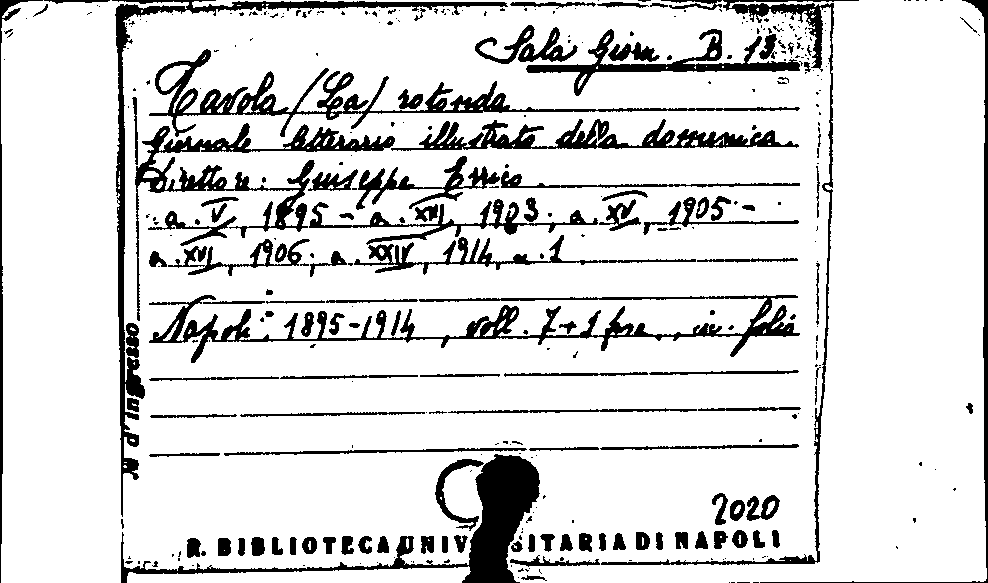 Sala Giorn. B. 13
Tavola (La) rotonda.
Giornale letterario illustrato della domenica.
Direttore: Giuseppe Errico.
a. V, 1895 - a. XIII, 1903; a. XV, 1905 -
a. XVI, 1906; a. XXIV, 1914, n. 1.
Napoli: 1895-1914, voll. 7+1 fasc., in folio
N. d'ingresso
2020
R. BIBLIOTECA UNIV SITARIA DI NAPOLI